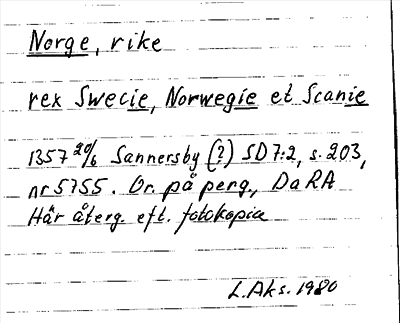 Norge, rike
rex Swecie, Norwegie et Scanie
1357 20/6 Sannersby (?) SD7:2, s. 203,
nr 5755. Or. på perg., DaRA
Här återg. eft. fotokopia
L.Aks. 1980